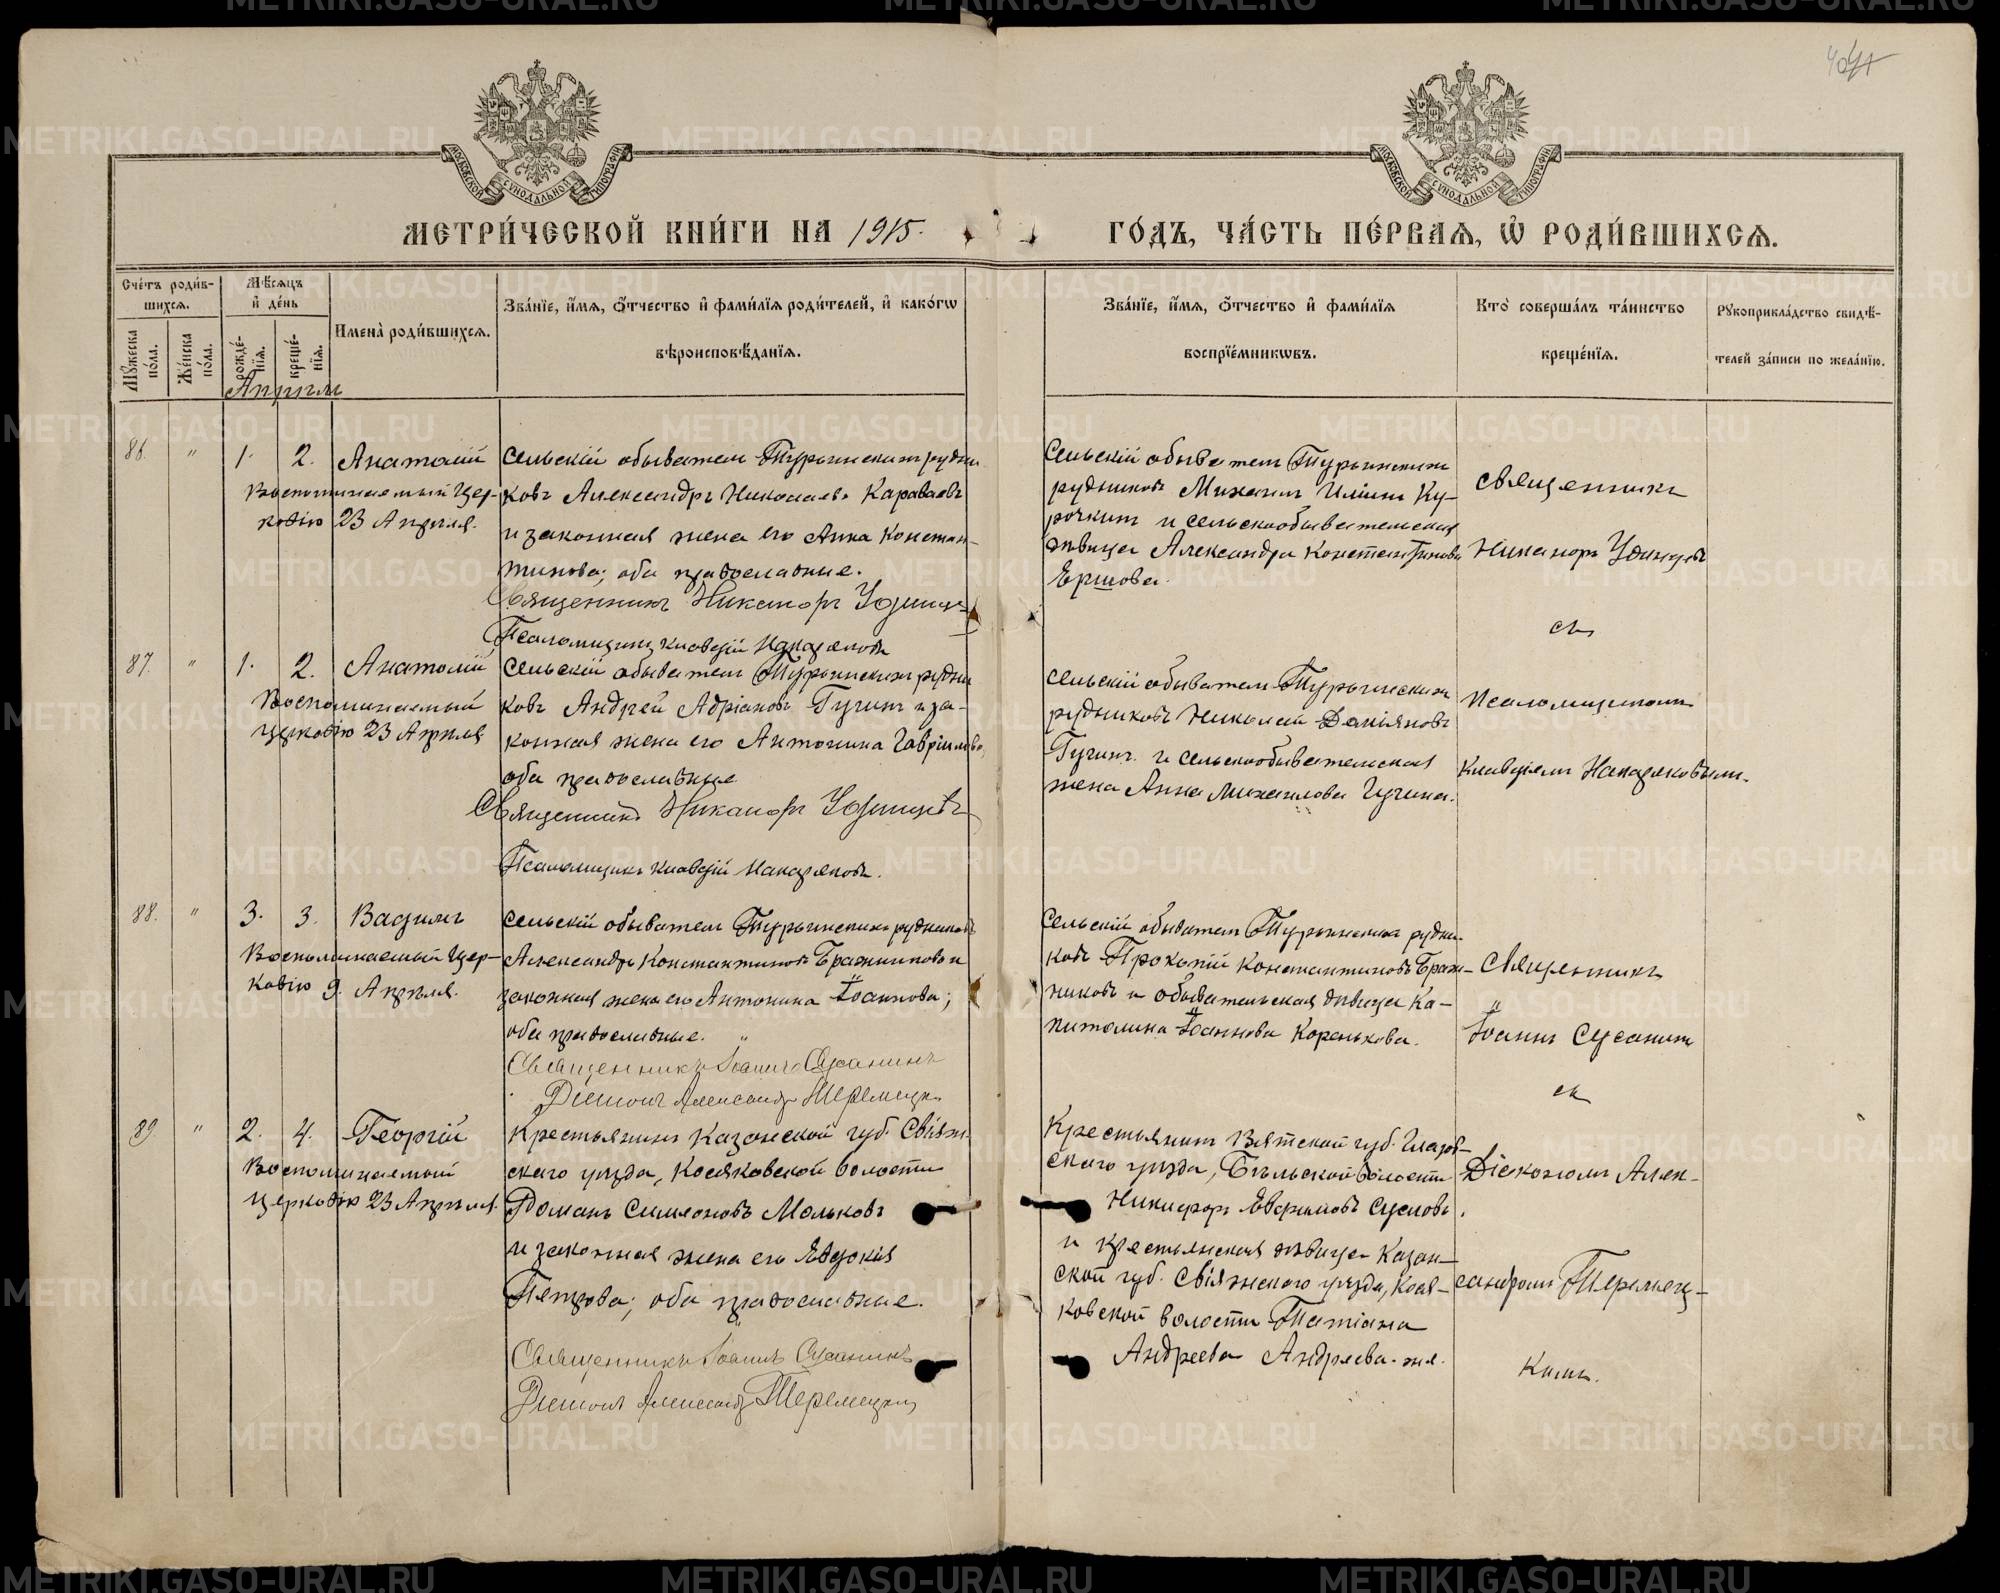 МЕТРИ́ЧЕСКОЙ КНИ́ГИ НА 1915.
ГО́ДЪ, ЧА́СТЬ ПЕ́РВАѦ, Ѽ РОДИ́ВШИХСѦ.
МОСКОВСКОЙ СѴНОДАЛЬНОЙ ТИПОГРАФІИ
МОСКОВСКОЙ СѴНОДАЛЬНОЙ ТИПОГРАФІИ
Сче́тъ роди́в-
шихся.
Мꙋ́жеска по́ла.
Же́нска по́ла.
Мѣ́сяцъ и҆ де́нь
рожде́-нїя.
креще́-нїя.
Имена̀ роди́вшихся.
Зва́нїе, и҆́мя, ѻ҆́тчество и҆ фами́лїя роди́телей, и҆ како́гѡ
вѣроисповѣ́данїя.
Зва́нїе, и҆́мя, ѻ҆́тчество и҆ фами́лїя
воспрїе́мникѡвъ.
Кто̀ соверша́лъ та́инство
креще́нїя.
Рꙋкоприкла́дство свидѣ́-
телей за́писи по жела́нїю.
Апрѣль
86. " 1. 2. Анатолій
Воспоминаемый Цер-
ковію 23 Апрѣля.
Сельскій обыватель Турьинскихъ рудни
ковъ Александръ Николаевъ Караваевъ
и законная жена его Анна Констан-
тинова; оба православные.
Священникъ Никаноръ Удинцевъ
Псаломщикъ Клавдій Накаряковъ
Сельскій обыватель Турьинскихъ
рудниковъ Михаилъ Иліинъ Ку-
рочкинъ и сельскообывательская
дѣвица Александра Константинова
Ершова.
Священникъ
Никаноръ Удинцевъ
съ
87. " 1. 2. Анатолій
Воспоминаемый
церковію 23 Апрѣля
Сельскій обыватель Турьинскихъ рудни
ковъ Андрей Адріановъ Гугинъ и за-
конная жена его Антонина Гавріилова,
оба православные
Священникъ Никаноръ Удинцевъ
Псаломщикъ Клавдій Накаряковъ.
Сельскій обыватель Турьинскихъ
рудниковъ Николай Даміановъ
Гугинъ и сельскообывательская
жена Анна Михаилова Гугина.
Псаломщикомъ
Клавдіемъ Накаряковымъ.
88. " 3. 3. Вадимъ
Воспоминаемый Цер-
ковію 9 Апрѣля.
Сельскій обыватель Турьинскихъ рудниковъ
Александръ Константиновъ Бражниковъ и
законная жена его Антонина Іоаннова;
оба православные.
Священникъ Іоаннъ Сусанинъ
Діаконъ Александръ Теремецкій
Сельскій обыватель Турьинскихъ рудни-
ковъ Прокопій Константиновъ Браж-
никовъ и обывательская дѣвица Ка-
питолина Іоаннова Коренькова.
Священникъ
Іоаннъ Сусанинъ
съ
89. " 2. 4. Георгій
Воспоминаемый
церковію 23 Апрѣля.
Крестьянинъ Казанской губ. Свіяж-
скаго уѣзда, Косяковской волости
Романъ Симеоновъ Мольковъ
и законная жена его Евдокія
Петрова; оба православные.
Священникъ Іоаннъ Сусанинъ
Діаконъ Александръ Теремецкій
Крестьянинъ Вятской губ. Глазов-
скаго уѣзда, Бѣльской волости
Никифоръ Евфимовъ Сусловъ
и крестьянская дѣвица Казан-
ской губ. Свіяжскаго уѣзда, Кося-
ковской волости Татіана
Андреева Андреева-же.
Діакономъ Алек-
сандромъ Теремец-
кимъ.